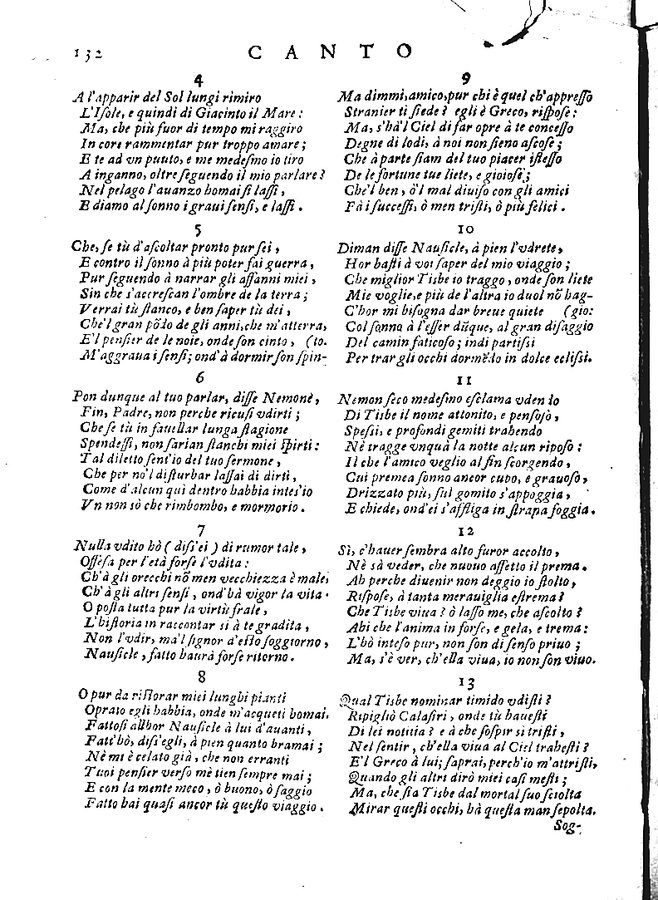 132 CANTO
4
A l'apparir del Sol lungi rimiro
L'Isole, e quindi di Giacinto il Mare:
Ma, che più fuor di tempo mi raggiro
In core rammentar pur troppo amare;
E te ad vn puuto, e me medesmo io tiro
A inganno, oltre seguendo il mio parlare?
Nel pelago l'auanzo homai si lassi,
E diamo al sonno i graui sensi, e lassi.
5
Che, se tù d'ascoltar pronto pur sei,
E contro il sonno à più poter fai guerra,
Pur seguendo à narrar gli affanni miei,
Sin che s'accrescan l'ombre de la terra;
Verrai tù stanco, e ben saper tù dei,
Che'l gran põdo de gli anni, che m'atterra,
E'l pensier de le noie, ond'on cinto, (to.
M'aggraua i sensi; ond'à dormir son spin-
6
Pon dunque al tuo parlar, disse Nemonè,
Fin, Padre, non perche ricusi vdirti;
Che se tù in fauellar lunga stagione
Spendessi, non sarian stanchi miei spirti:
Tal diletto sent'io del tuo sermone,
Che per no'l disturbar lassai di dirti,
Come d'alcun quì dentro habbia intes'io
Vn non sò che rimbombo, e mormorio.
7
Nulla vdito hò (diss'ei) di rumor tale,
Offesa per l'età forse l'vdita:
Ch'à gli orecchi nõ men vecchiezza è male,
Ch'à gli altri sensi, ond'bà vigor la vita.
O posta tutta pur la virtù frale,
L'historia in raccontar sì à te gradita,
Non l'vdir; ma'l signor d'esto soggiorno,
Nausicle, fatto haurà forse ritorno.
8
O pur da ristorar miei lunghi pianti
Oprato egli habbia, onde m'acqueti homai.
Fattosi allhor Nausicle à lui d'auanti,
Fatt'hò, diss'egli, à pien quanto bramai;
Nè mi è celato già, che non erranti
Tuoi pensier verso mè tien sempre mai;
E con la mente meco, ò buono, ò saggio
Fatto hai quasi ancor tù questo viaggio.
9
Ma dimmi, amico, pur chi è quel ch'appresso
Stranier ti siede? egli è Greco, rispose:
Ma, s'hà'l Ciel di far opre à te concesso
Degne di lodi, à noi non sieno ascose;
Che à parte siam del tuo piacer istesso
De le fortune tue liete, e gioiose;
Che'l ben, ò'l mal diuiso con gli amici
Fà i successi, ò men tristi, ò più felici.
10
Diman disse Nausicle, à pien l'vdrete,
Hor basti à voi saper del mio viaggio;
Che miglior Tisbe io traggo, onde son liete
Mie voglie, e più de l'altra io duol nõ hag-
C'hor mi bisogna dar breue quiete (gio:
Col sonno à l'esser dũque, al gran disaggio
Del camin faticoso; indi partissi
Per trar gli occhi dormẽdo in dolce eclissi.
11
Nemon seco medesmo esclama vdendo
Di Tisbe il nome attonito, e pensoso,
Spessi, e profondi gemiti trahendo
Nè tragge vnquà la notte alcun riposo:
Il che l'amico veglio al fin scorgendo,
Cui premea sonno ancor cupo, e grauoso,
Drizzato più, sul gomito s'appoggia,
E chiede, ond'ei s'affliga in strapa foggia.
12
Sì, c'hauer sembra alto furor accolto,
Nè sà veder, che nuouo affetto il prema.
Ah perche diuenir non deggio io stolto,
Rispose, à tanta merauiglia estrema?
Che Tisbe viua? ò lasso me, che ascolto?
Ahi che l'anima in forse, e gela, e trema:
L'hò inteso pur, non son di senso priuo;
Ma, s'è ver, ch'ella viua, io non son viuo.
13
Qual Tisbe nominar timido vdisti?
Ripigliò Calasiri, onde tù hauesti
Di lei notitia? e à che sospir sì tristi,
Nel sentir, ch'ella viua al Ciel trahesti?
E'l Greco à lui; saprai, perch'io m'attristi,
Quando gli altri dirò miei casi mesti;
Ma, che sia Tisbe dal mortal suo sciolta
Mirar questi occhi, hà questa man sepolta.
Sog-